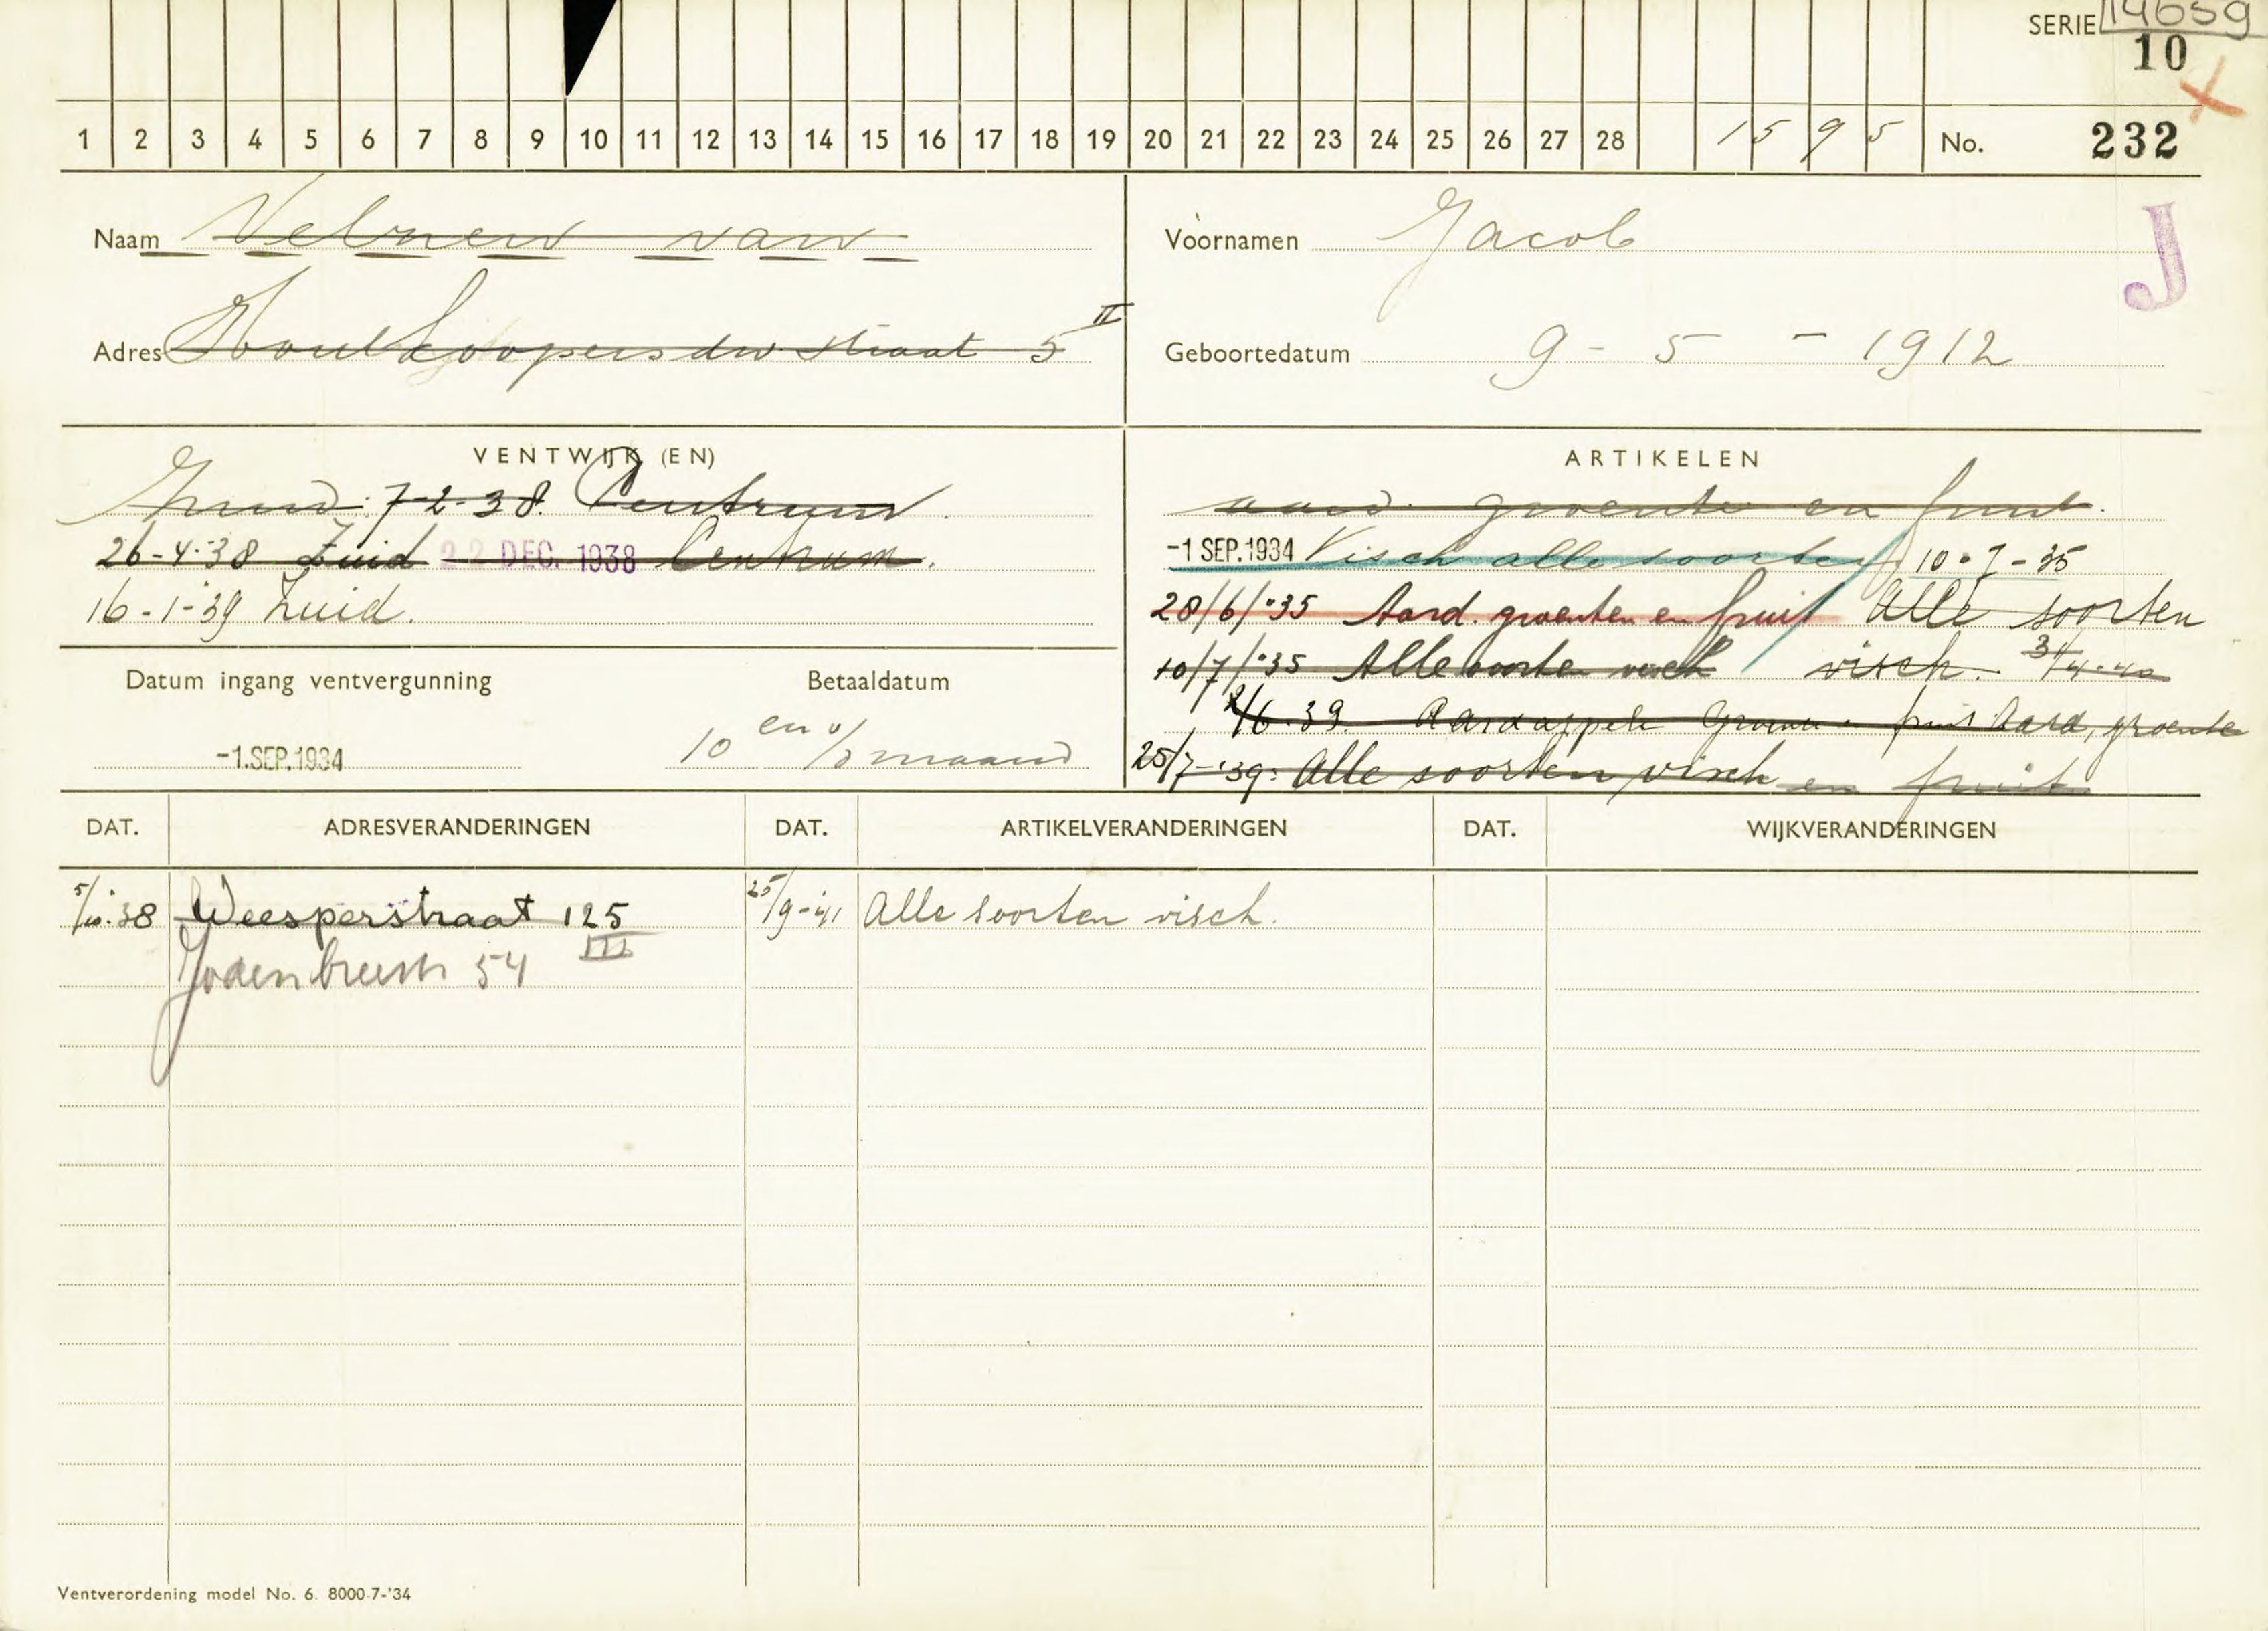 SERIE 14659
10
1 2 3 4 5 6 7 8 9 10 11 12 13 14 15 16 17 18 19 20 21 22 23 24 25 26 27 28 1595 No. 232
Naam Velzen van
Voornamen Jacob
J
Adres Houtkoopersdw straat 5 II
Geboortedatum 9 - 5 - 1912
VENTWIJK (EN)
7-2-38 Centrum.
26-4-38 Zuid 22 DEC. 1938 Centrum.
16-1-39 Zuid.
ARTIKELEN
aard. groente en fruit.
-1 SEP. 1934 Visch alle soorten 10-7-35
28/6/'35 Aard. groenten en fruit Alle soorten
10/7/'35 Alle soorten visch visch. 3/4-40
2/6-39. Aardappelen Groente en fruit Aard, groente
25/7-'39: Alle soorten visch en fruit
Datum ingang ventvergunning
-1.SEP.1934
Betaaldatum
10 en v/d maand
DAT. ADRESVERANDERINGEN DAT. ARTIKELVERANDERINGEN DAT. WIJKVERANDERINGEN
5/10-38 Weesperstraat 125 III 25/9-'41 Alle soorten visch.
Jodenbreestr 54
Ventverordening model No. 6. 8000-7-'34